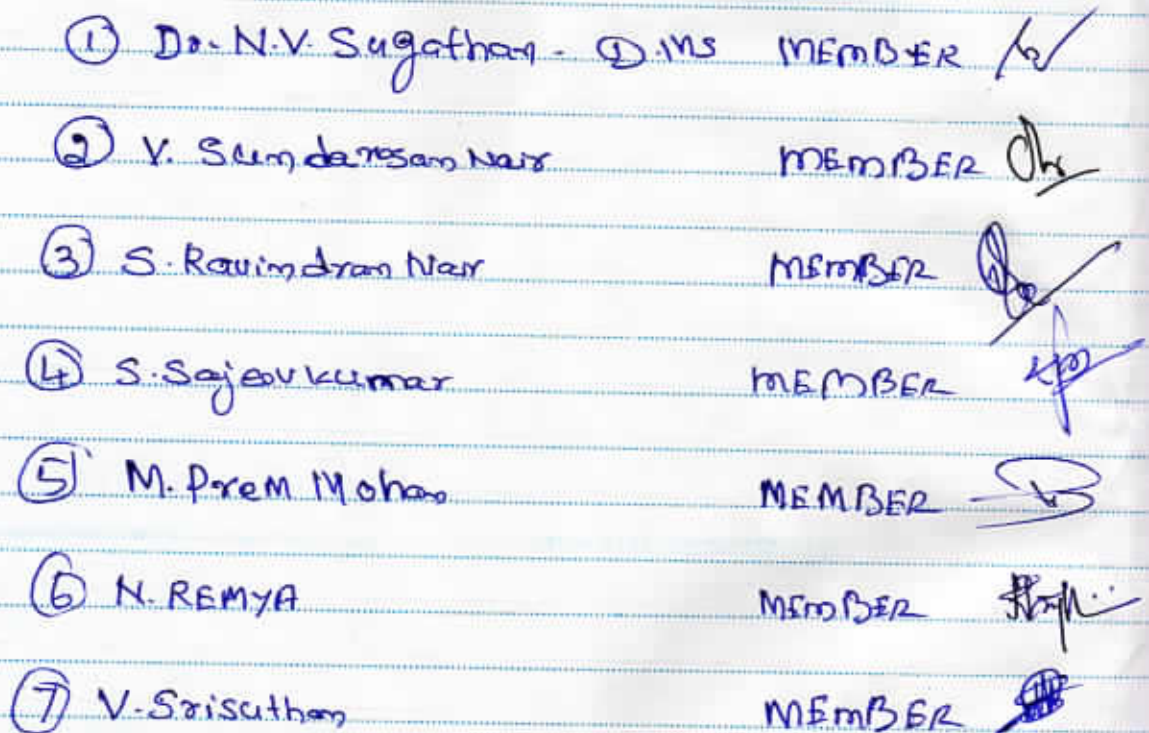 ① Dr. N.V. Sugathan - D.MS MEMBER
② V. Sundaresan Nair MEMBER
③ S. Ravindran Nair MEMBER
④ S. Sajeevkumar MEMBER
⑤ M. Prem Mohan MEMBER
⑥ N. REMYA MEMBER
⑦ V. Srisuthan MEMBER